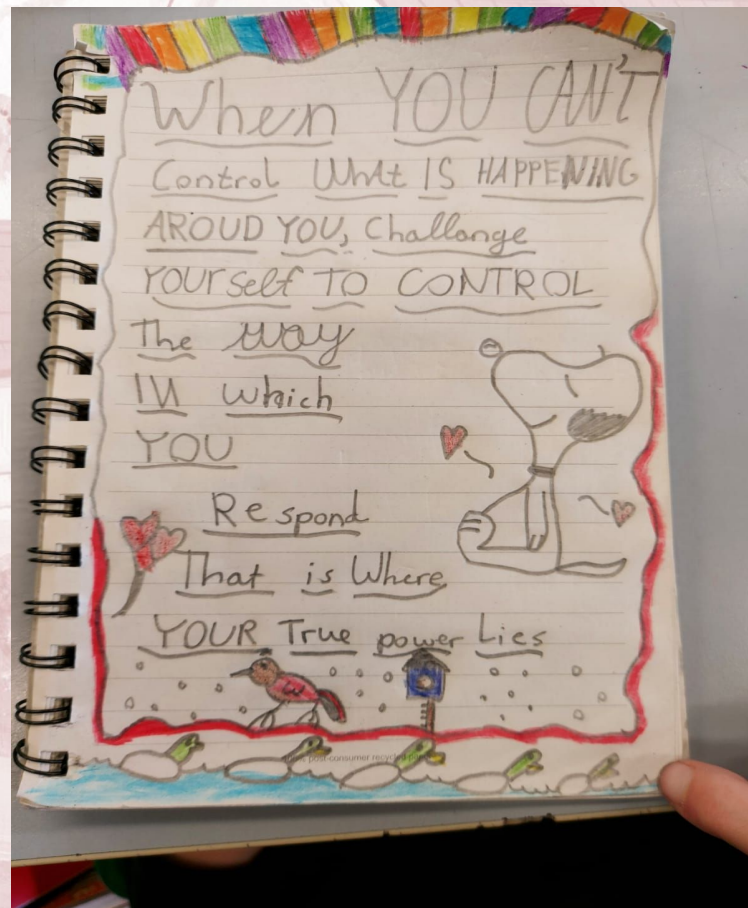 When YOU CAN'T
Control WhAt IS HAPPENING
AROUD YOU, Challange
YOUrself TO CONTROL
The way
IN which
YOU
Respond
That is Where
YOUR True power Lies
post-consumer recycled